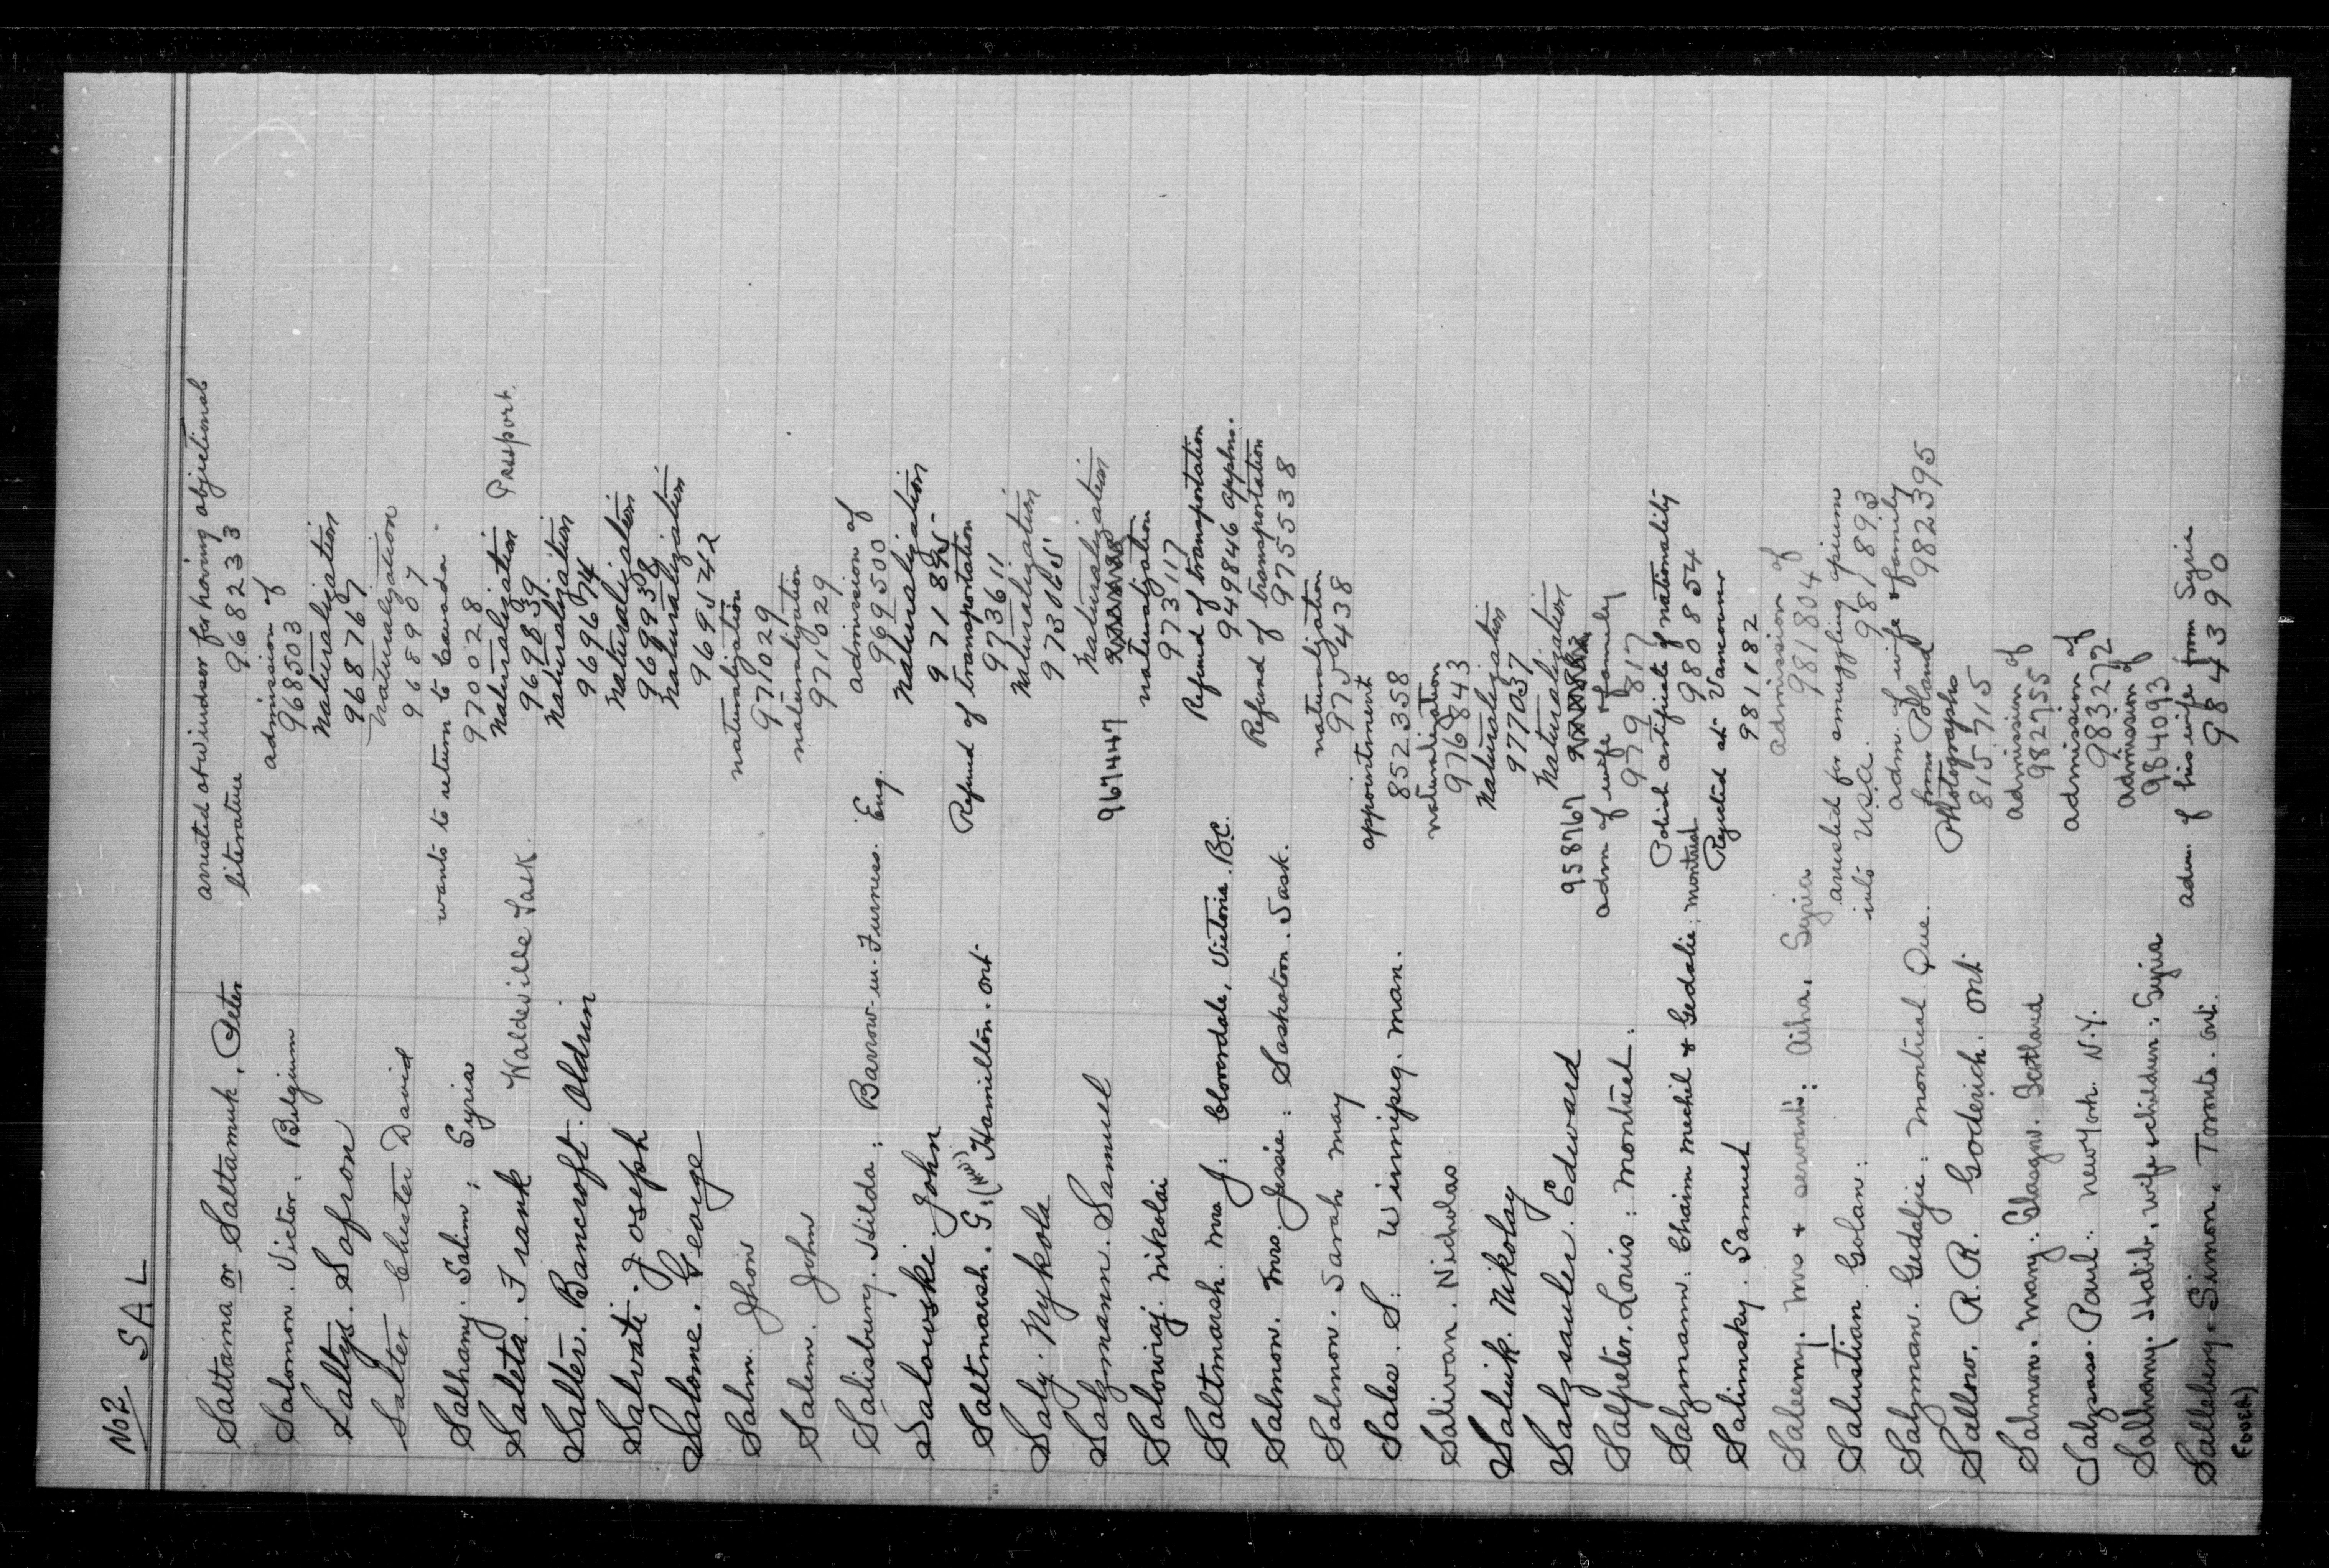 No 2 SAL
Saltama or Saltamuk, Peter arrested at Windsor for having objectional
literature 968233
Salomon. Victor: Belgium admission of
968503
Saltys. Safron Naturalization
968767
Salter Chester David Naturalization
968907
Salhany. Salim; Syria wants to return to Canada
970028
Saleta. Frank Waldeville Sask. Naturalization Passport.
969839
Salter. Bancroft. Oldrin Naturalization
969674
Salvati. Joseph Naturalization
969938
Salome. George Naturalization
969542
Salm. Jhon naturalization
971029
Salem. John naturalization
971029
Salisbury. Hilda; Barrow-in-Furness. Eng. admission of
969500
Salowski. John Naturalization
971895
Saltmarsh. G: (Mrs) Hamilton. Ont Refund of transportation
973611
Saly. Nykola Naturalization
973065
Salzmann. Samuel Naturalization
967447
Salowiaj. Nikolai naturalization
973117
Saltmarsh. Mrs J: Cloverdale, Victoria. B.C. Refund of transportation
949846 applns.
Salmon. Mrs. Jessie: Saskatoon. Sask. Refund of transportation
975538
Salmon. Sarah May naturalization
975438
Sales. S: Winnipeg. Man. appointment
852358
Salivan. Nicholas naturalization
976843
Salnik. Nikolay Naturalization
977037
Salzsauler. Edward Naturalization
958767
Salpeter. Louis: Montreal. adm of wife & family
979817
Salzmann. Chaim Mechil & Gedalie; Montreal Polish certificate of nationality
980854
Salimsky. Samuel Rejected at Vancouver
981182
Saleemy. Mrs & servants: Aiha, Syria admission of
981804
Salustian Golan: arrested for smuggling opium
into U.S.A. 981893
Salzman. Gedalje: Montreal Que. adm. of wife & family
from Poland 982395
Sallow. R.R. Goderich. Ont Photographs
815715
Salmon. Mary: Glasgow. Scotland admission of
982755
Salzsas. Paul: New York. N.Y. admission of
983272
Salhany. Halib. wife & children: Syria admission of
984093
Salleberg. Simon. Toronto. Ont. adm. of his wife from Syria
984390
(over)